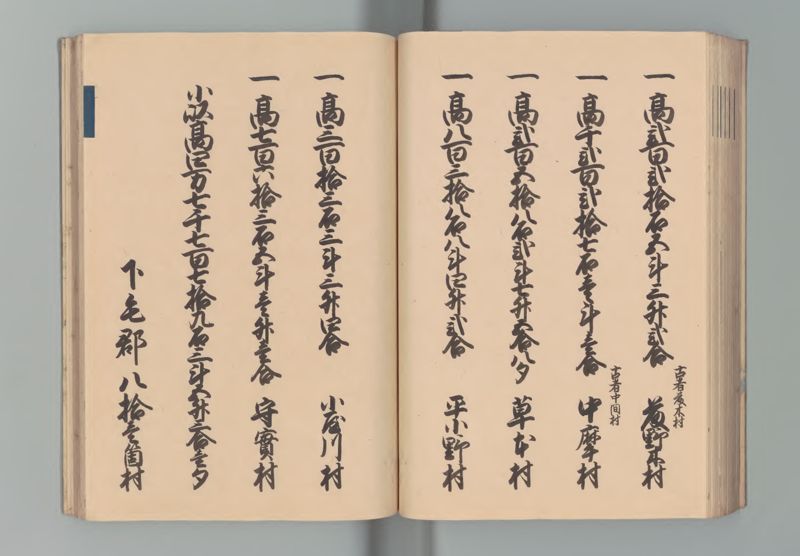 一 高弐百弐拾石五斗三升弐合 古者藤木村 藤野木村
一 高千弐百弐拾七石壱斗壱合 古者中間村 中摩村
一 高弐百五拾八石弐斗七升五合八夕 草本村
一 高八百三拾八石八斗四升弐合 平小野村
一 高三百拾三石三斗三升四合 小屋川村
一 高七百六拾三石五斗壱升壱合 守實村
小以高四万七千七百七拾九石三斗五升三合壱夕
下毛郡 八拾壱箇村